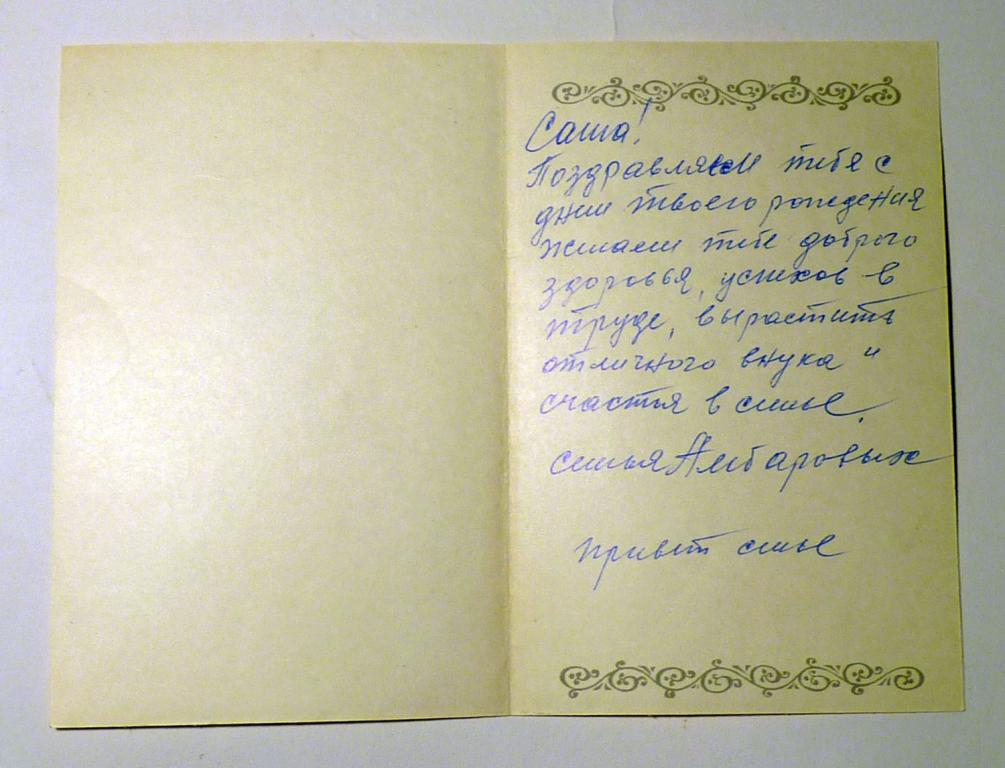 Саша!
Поздравляем тебя с
днем твоего рождения
желаем тебе доброго
здоровья, успехов в
труде, вырастить
отличного внука и
счастья в семье.
семья Амбаровых
привет семье